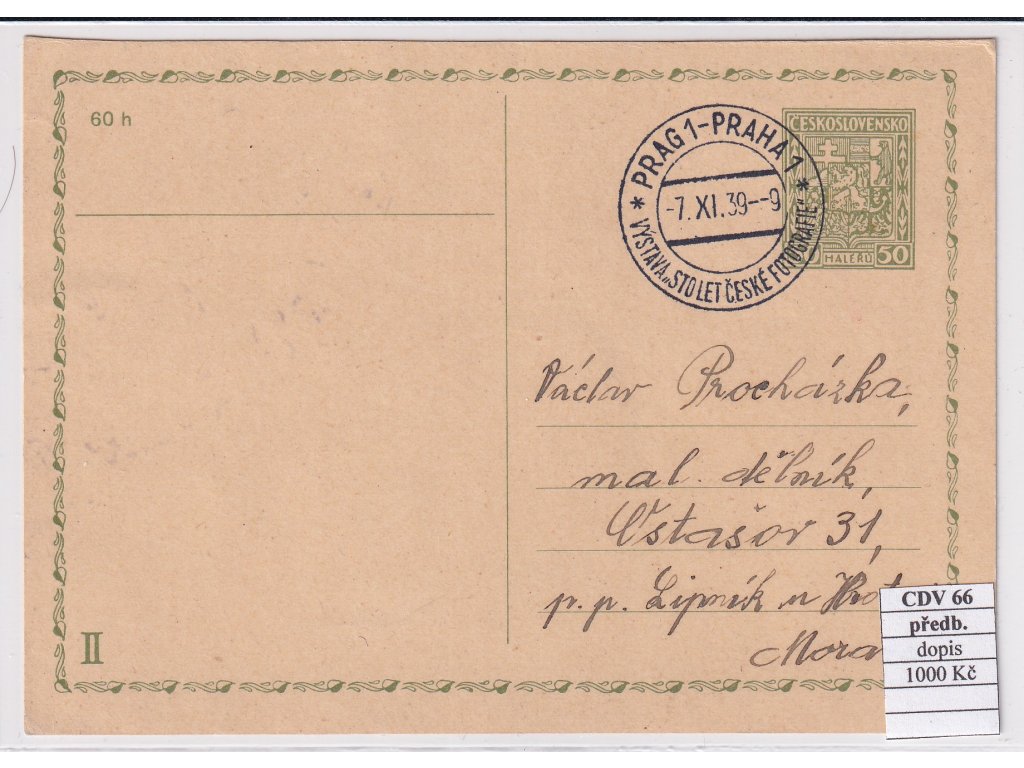 60 h
PRAG 1-PRAHA 1
-7.XI.39--9
VÝSTAVA „STO LET ČESKÉ FOTOGRAFIE"
ČESKOSLOVENSKO
HALÉŘŮ 50
Václav Procházka,
mal. dělník,
Ostašov 31,
p.p. Lipník u
Mora
II
CDV 66
předb.
dopis
1000 Kč